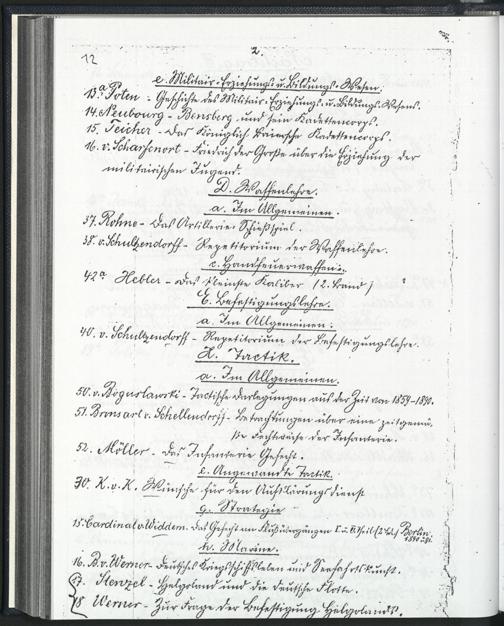 12
2.
e. Militair-Erziehungs u. Bildungs-Wesen.
13a Poten - Geschichte des Militair-Erziehungs- u. Bildungs-Wesens.
14. Neubourg - Bensberg und sein Kadettencorps.
15. Teicher - Das Königlich Bairische Kadettencorps.
16. v. Scharfenort - Friedrich der Große über die Erziehung der
militairischen Jugend.
D. Waffenlehre.
a. Im Allgemeinen.
37. Rohne - Das Artillerie-Schießspiel.
38. v. Schultzendorff - Repetitorium der Waffenlehre.
c. Handfeuerwaffen.
42a Hebler - Das kleinste Kaliber (2. Band)
E. Befestigungslehre.
a. Im Allgemeinen.
40. v. Schultzendorff - Repetitorium der Befestigungslehre.
Tactik.
a. Im Allgemeinen.
50. v. Boguslawski - Tactische Darlegungen aus der Zeit von 1859-1890.
51. Bronsart v. Schellendorff - Betrachtungen über eine zeitgemä-
ße Fechtweise der Infanterie.
52. Möller - Das Infanterie Gefecht.
e. Angewandte Tactik.
30. K. v. K. Wünsche für den Aufklärungsdienst
g. Strategie
15. Cardinal v. Widdern. Das Gefecht an Flußübergängen I. u. II. Theil (2 Bde) Berlin
h. Marine.
16. B. v. Werner - Deutsches Kriegsschiffsleben und Seefahrtskunst.
17. Stenzel - Helgoland und die deutsche Flotte.
18 Werner - Zur Frage der Befestigung Helgolands.